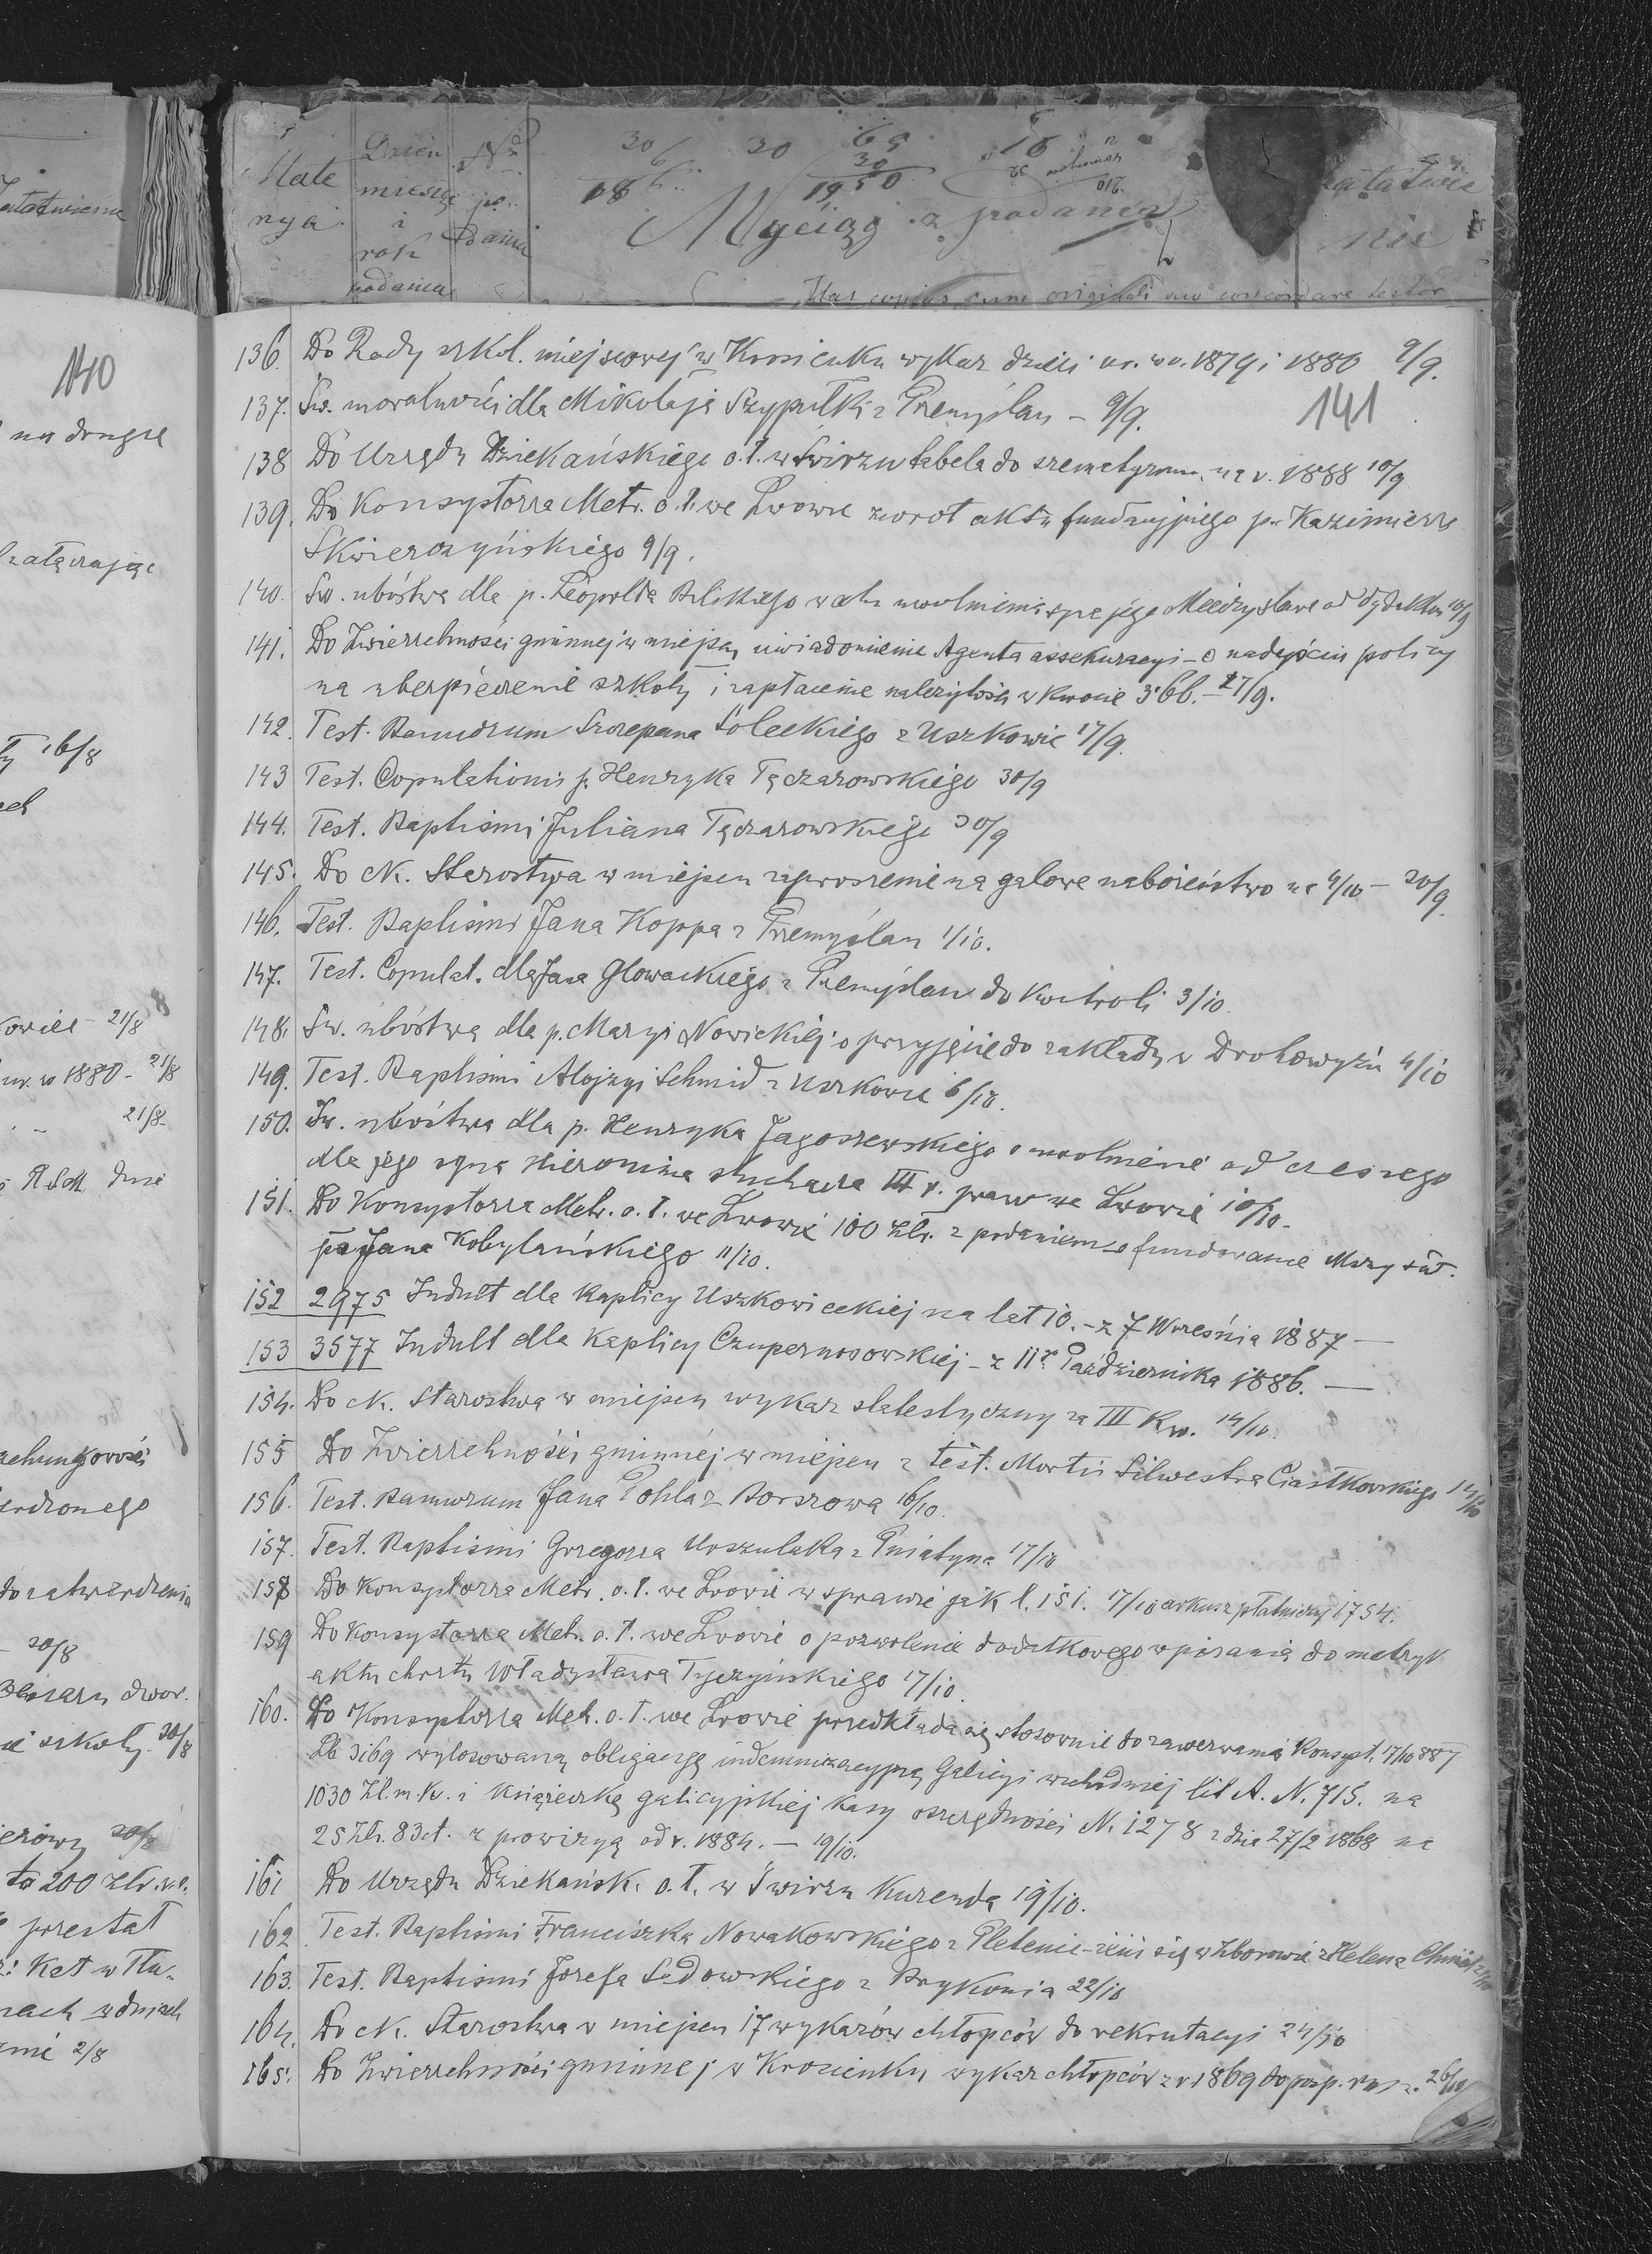 140
na drugie
16/8
21/8
w 1880 - 21/8
21/8
20/8
szkoły. 20/8
20/8
to 200 Zlr.
przestał
w dniach
2/8
Dzień
miesiąc
i
rok
podania
Nr
po-
dania
30 30 65
30
1950
Wyciąg z podania
załatwie
nie
141
136. Do Rady szkol. miejscowej w Krosienku wykaz dzieci ur. w r. 1879 i 1880 9/9.
137. Św. moralności dla Mikołaja Szypułki z Przemyślan - 9/9.
138 Do Urzędu Dziekańskiego o. ł. w Świrzu tabela do szematyzmu na r. 1888 10/9
139. Do Konsystorza Metr. o. ł. we Lwowie zwrot aktu fundacyjnego p. Kazimierza
Skwierczyńskiego 9/9.
140. Św. ubóstwa dla p. Leopolda Bilskiego w celu uwolnienia syna jego Mieczysława od dydaktru 10/9
141. Do Zwierzchności gminnej w miejscu uwiadomienie Agenta assekuracyi - o nadejściu policy
na ubezpieczenie szkoły i zapłacenie należytości w kwocie 3·66. - 17/9.
142. Test. Bannorum Szczepana Soleckiego z Uszkowic 17/9.
143 Test. Copulationis p. Henryka Tęczarowskiego 30/9
144. Test. Baptismi Juliana Tęczarowskiego 30/9
145. Do ck. Starostwa w miejscu zaproszenie na galowe nabożeństwo na 4/10 - 30/9.
146. Test. Baptismi Jana Koppa z Przemyślan 1/10.
147. Test. Copulat. dla Jana Głowackiego z Przemyślan do kontroli 3/10.
148. Św. ubóstwa dla p. Maryi Nowickiej o przyjęcie do zakładu w Drohowyżu 4/10
149. Test. Baptismi Alojzyi Schmid z Uszkowic 6/10.
150. Św. ubóstwa dla p. Henryka Jagoszewskiego o uwolnienie od czesnego
dla jego syna Hieronima słuchacza III r. praw we Lwowie 10/10.
151. Do Konsystorza Metr. o. ł. we Lwowie 100 Zlr. z podaniem o fundowanie Mszy św.
p. Jana Kobylańskiego 11/10.
152 2975 Indult dla Kaplicy Uszkowieckiej na lat 10. - z 7 Września 1887 —
153 3577 Indult dla Kaplicy Czupernosowskiej - z 11go Października 1886. —
154. Do ck. Starostwa w miejscu wykaz statystyczny za III Kw. 14/10.
155 Do Zwierzchności gminnej w miejscu z test. Mortis Silwestra Ciastkowskiego 14/10
156. Test. Bannorum Jana Pohla z Borszowa 16/10.
157. Test. Baptismi Grzegorza Urszulaka z Pniatyna 17/10
158 Do Konsystorza Metr. o. ł. we Lwowie w sprawie jak l. 151. 17/10 arkusz płatniczy 1754.
159 Do Konsystorza Metr. o. ł. we Lwowie o pozwolenie dodatkowego wpisania do metryk
aktu chrztu Władysława Tyczyńskiego 17/10.
160. Do Konsystorza Metr. o. ł. we Lwowie przedkłada się stosownie do zawezwania Konsyst. 17/10 887
Lb 3169 wylosowaną obligacyę indemnizacyjną Galicyi wschodniej lit A. N. 715. na
1030 Zł. m. k. i książeczkę galicyjskiej Kasy oszczędności N. 1278 z dnia 27/2 1868 na
25 Zlr. 83 ct. z prowizyą od r. 1884. — 19/10.
161 Do Urzędu Dziekańsk. o. ł. w Świrzu Kurenda 19/10.
162 Test. Baptismi Franciszka Nowakowskiego z Pletenic - żeni się w Zborowie z Heleną
163. Test. Baptismi Józefa Sadowskiego z Brykonia 22/10
164. Do ck. Starostwa w miejscu 17 wykazów chłopców do rekrutacyi 24/10
165. Do Zwierzchności gminnej w Krosienku wykaz chłopców z r. 1869 do posp. rusz. 26/10